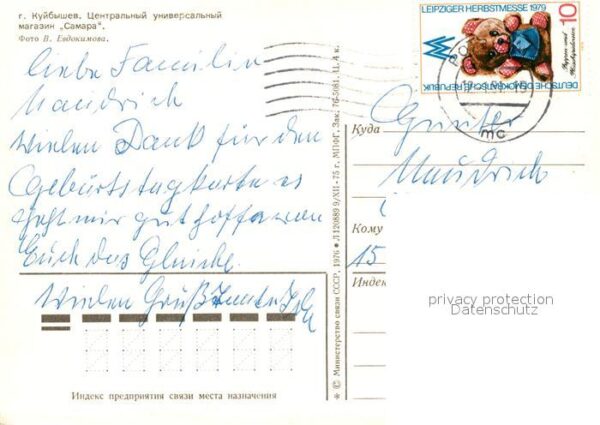 г. Куйбышев. Центральный универсальный
магазин „Самара".
Фото В. Евдокимова.
liebe Familie
Maudrich
Vielen Dank für den
Geburtstagkarte es
geht mir gut hoffe von
Euch das Gleiche.
Vielen Grüß
LEIPZIGER HERBSTMESSE 1979
10
Puppen und
DEUTSCHE DEMOKRATISCHE REPUBLIK
mc
Куда
Günter
Maudrich
Кому
15
Индекс
privacy protection
Datenschutz
* © Министерство связи СССР, 1976 ● Л 120889 9/XII-75 г. МПФГ. Зак. 76-5081. ц. 4 к.
Индекс предприятия связи места назначения